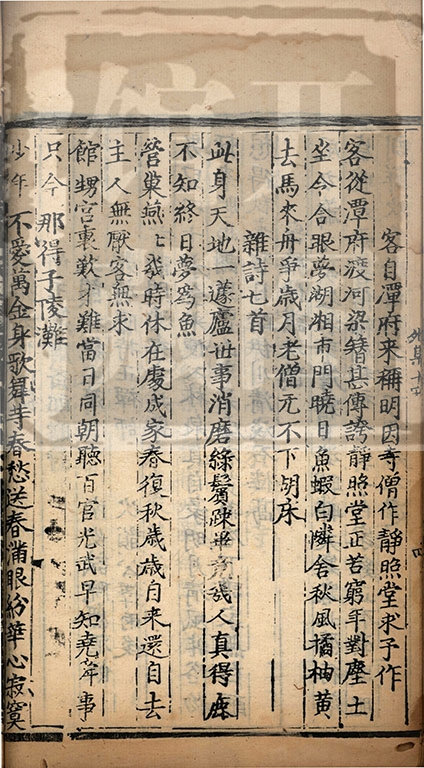 客自潭府来稱明因寺僧作靜照堂求予作
客從潭府渡河梁籍甚傳誇靜照堂正苦窮年對塵土
坐令合眼夢湖湘市門曉日魚蝦白隣舍秋風橘柚黄
去馬來舟爭歲月老僧元不下胡床
雜詩七首
此身天地一蘧廬世事消磨綠鬢踈畢竟幾人真得鹿
不知終日夢為魚
營巢燕燕幾時休在處成家春復秋歲歲自来還自去
主人無厭客無求
館甥宮裏歎才難當日同朝聽百官光武早知堯舜事
只今那得子陵灘
少年不愛萬金身歌舞尋春愁送春滿眼紛華心寂寞
外集十四
四